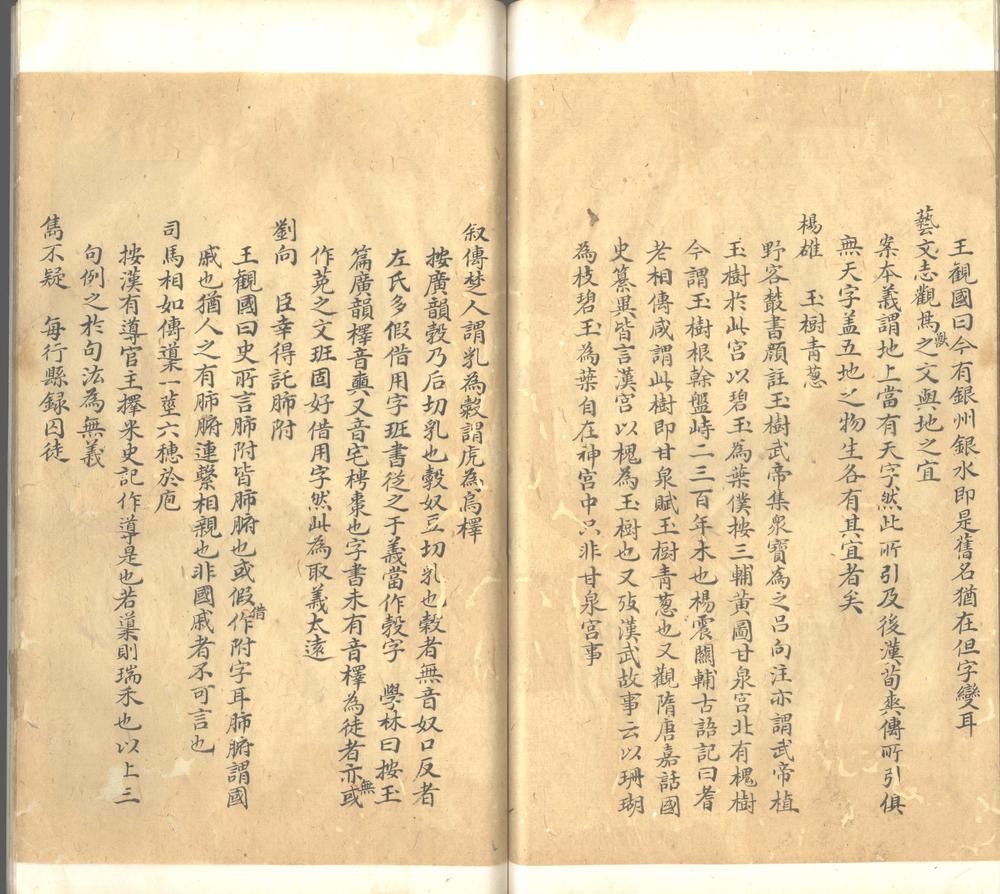 王觀國曰今有銀州銀水即是舊名猶在但字變耳
藝文志觀鳥獸之文與地之宜
案本義謂地上當有天字然此所引及後漢荀爽傳所引俱
無天字盖五地之物生各有其宜者矣
楊雄 玉樹青葱
野客叢書顏註玉樹武帝集衆寶為之呂向注亦謂武帝植
玉樹於此宮以碧玉為葉僕按三輔黃圖甘泉宮北有槐樹
今謂玉樹根幹盤峙二三百年木也楊震關輔古語記曰耆
老相傳咸謂此樹即甘泉賦玉樹青葱也又觀隋唐嘉話國
史纂異皆言漢宮以槐為玉樹也又攷漢武故事云以珊瑚
為枝碧玉為葉自在神宮中只非甘泉宮事
叙傳楚人謂乳為糓謂虎為烏檡
按廣韻㝅乃后切乳也㝅奴豆切乳也糓者無音奴口反者
左氏多假借用字班書從之于義當作㝅字 學林曰按玉
篇廣韻檡音藇又音宅樗棗也字書未有音檡為徒者亦無或
作菟之文班固好借用字然此為取義太遠
劉向 臣幸得託肺附
王觀國曰史所言肺附皆肺腑也或假借作附字耳肺腑謂國
戚也猶人之有肺腑連繫相親也非國戚者不可言也
司馬相如傳䆃一莖六穗於庖
按漢有導官主擇米史記作導是也若䆃則瑞禾也以上三
句例之於句法為無義
雋不疑 每行縣録囚徒